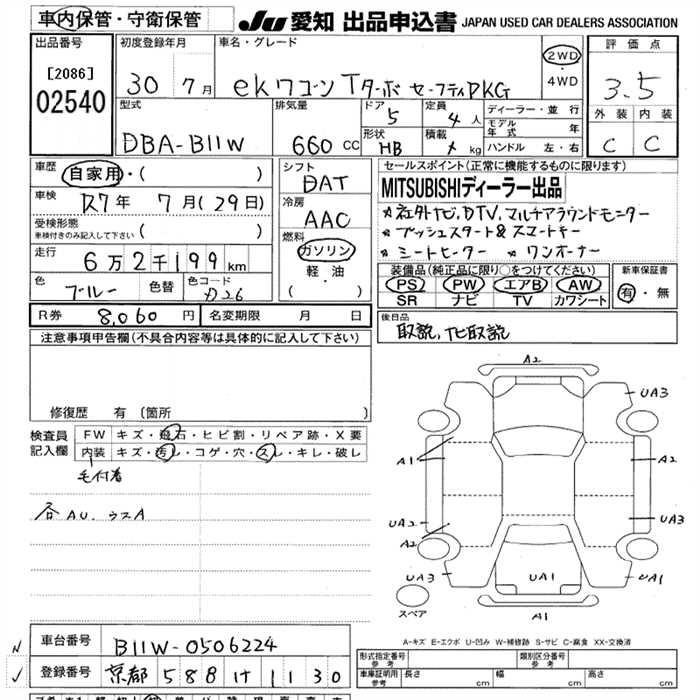 車内保管・守衛保管
JU 愛知 出品申込書 JAPAN USED CAR DEALERS ASSOCIATION
出品番号
[2086]
02540
初度登録年月
30年 7月
車名・グレード
ekワゴン Tターボ セーフティPKG
2WD・4WD
評価点
3.5
外装 内装
C C
型式
DBA-B11W
排気量
660 CC
ドア
5
形状
HB
定員
4人
積載
kg
ディーラー・並行
モデル年式 年
ハンドル 左・右
車歴
自家用・( )
車検
R7年 7月(29日)
受検形態
車検付きのみ記入して下さい ( )
走行
6万2千199km
色
ブルー
色替
色コード
D26
シフト
DAT
冷房
AAC
燃料
ガソリン
軽油
( )
セールスポイント(正常に機能するものに限ります)
MITSUBISHIディーラー出品
社外ナビ,DTV,マルチアラウンドモニター
プッシュスタート&スマートキー
シートヒーター ワンオーナー
装備品(純正品に限り○をつけてください)
PS PW エアB AW
SR ナビ TV カワシート
新車保証書
有・無
R券 8,060円
名変期限 月 日
後日品
取説,ナビ取説
注意事項申告欄(不具合内容等は具体的に記入して下さい)
修復歴 有(箇所 )
検査員記入欄
FW キズ・飛石・ヒビ割・リペア跡・X要
内装 キズ・汚レ・コゲ・穴・スレ・キレ・破レ
毛付着
各AU.ウスA
A2
UA3
A1
A2
UA2
A2
UA3
UA3
UA1
UA1
A1
スペア
A-キズ E-エクボ U-凹み W-補修跡 S-サビ C-腐食 XX-交換済
車台番号 B11W-0506224
登録番号 京都 588 け 1130
形式指定番号 参考
類別区分番号 参考
車庫証明用 参考
長さ cm
幅 cm
高さ cm